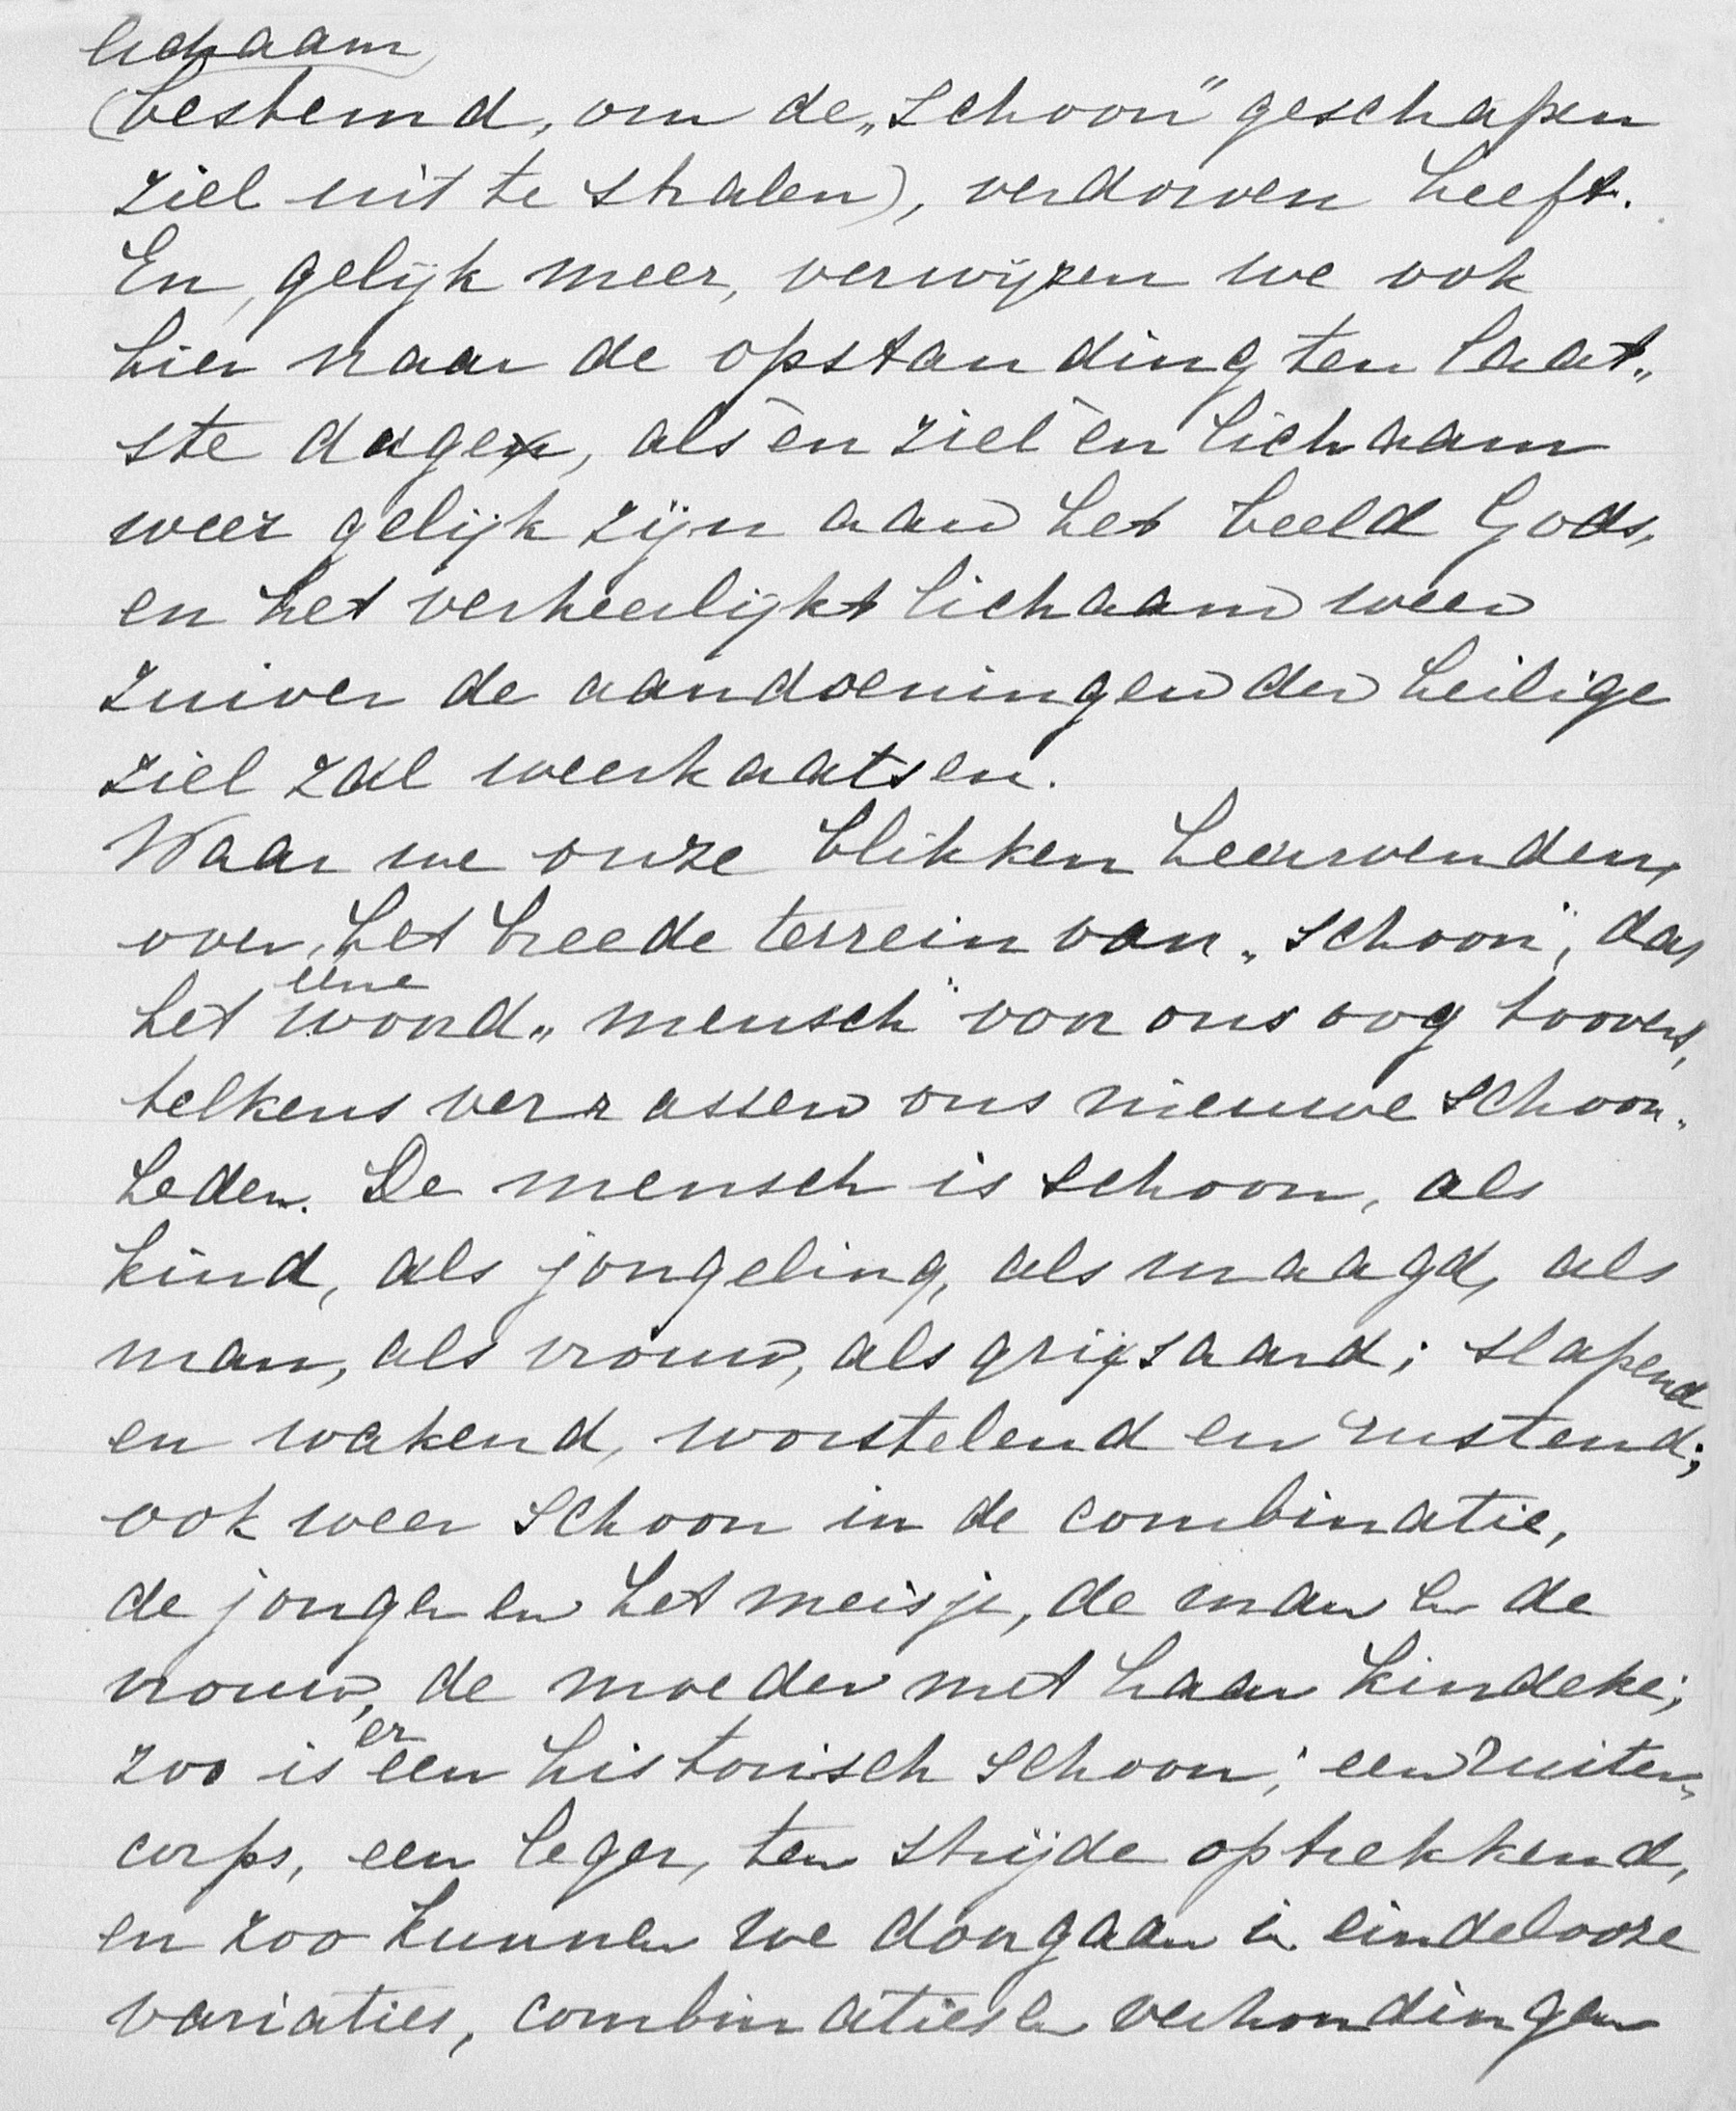 lichaam
(bestemd, om de „schoon" geschapen
ziel uit te stralen), verdorven heeft.
En, gelijk meer, verwijzen we ook
hier naar de opstanding ten laat„
ste dage, als èn ziel èn lichaam
weer gelijk zijn aan het beeld Gods,
en het verheerlijkt lichaam weer
zuiver de aandoeningen der heilige
ziel zal weerkaatsen.
Waar we onze blikken heenwenden,
over het breede terrein van „schoon", dat
het eene woord „mensch" voor ons oog toovert,
telkens verrassen ons nieuwe schoon„
heden. De mensch is schoon, als
kind, als jongeling, als maagd, als
man, als vrouw, als grijsaard; slapend
en wakend, worstelend en rustend;
ook weer schoon in de combinatie,
de jongen en het meisje, de man en de
vrouw, de moeder met haar kindeke;
zoo is er een historisch schoon; een ruiter„
corps, een leger, ten strijde optrekkend,
en zoo kunnen we doorgaan in eindelooze
variaties, combinaties en verhoudingen